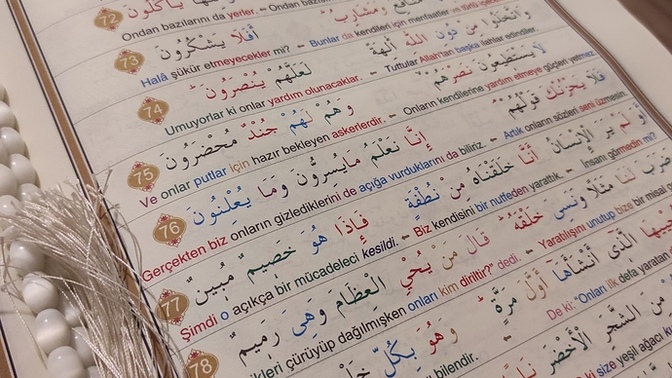 يَأْكُلُونَ 72
Ondan bazılarını da yerler.
مَنَافِعُ وَمَشَارِبُ أَفَلَا يَشْكُرُونَ 73
Bunlar da kendileri için menfaatler Halâ şükür etmeyecekler mi?
وَاتَّخَذُوا مِنْ دُونِ اللّٰهِ اٰلِهَةً لَعَلَّهُمْ يُنْصَرُونَ 74
Tuttular Allah'tan başka ilahlar edindiler. Umuyorlar ki onlar yardım olunacaklar.
لَا يَسْتَطِيعُونَ نَصْرَهُمْ وَهُمْ لَهُمْ جُنْدٌ مُحْضَرُونَ 75
Onların kendilerine yardım etmeye güçleri yetmez. Ve onlar putlar için hazır bekleyen askerlerdir.
فَلَا يَحْزُنْكَ قَوْلُهُمْ إِنَّا نَعْلَمُ مَا يُسِرُّونَ وَمَا يُعْلِنُونَ 76
Artık onların sözleri seni üzmesin. Gerçekten biz onların gizlediklerini de açığa vurduklarını da biliriz.
أَوَ لَمْ يَرَ الْإِنْسَانُ أَنَّا خَلَقْنَاهُ مِنْ نُطْفَةٍ فَإِذَا هُوَ خَصِيمٌ مُبِينٌ 77
İnsanı görmedin mi? Biz kendisini bir nutfeden yarattık. Şimdi o açıkça bir mücadeleci kesildi.
لَنَا مَثَلًا وَنَسِيَ خَلْقَهُ قَالَ مَنْ يُحْيِ الْعِظَامَ وَهِيَ رَمِيمٌ 78
Yaratılışını unutup bize bir dedi. çürüyüp dağılmışken onları kim diriltir?"
الَّذِي أَنْشَأَهَا أَوَّلَ مَرَّةٍ وَهُوَ بِكُلِّ
De ki: "Onları ilk defa yaratan bilendir.
مِنَ الشَّجَرِ الْأَخْضَرِ
ki size yeşil ağacı